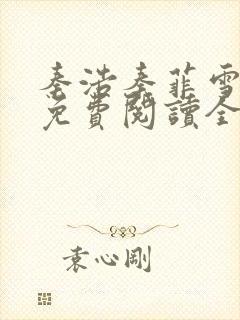 秦浩秦菲雪
免費閱讀全
袁心剛